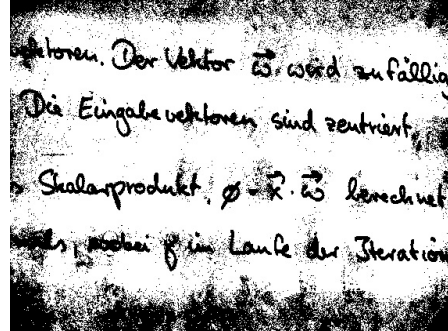 vektoren. Der Vektor $\vec{\omega}$ wird zufällig
Die Eingabevektoren sind zentriert,
Skalarprodukt, ø = $\vec{x} \cdot \vec{\omega}$ berechnet
wobei f im Laufe der Iteration